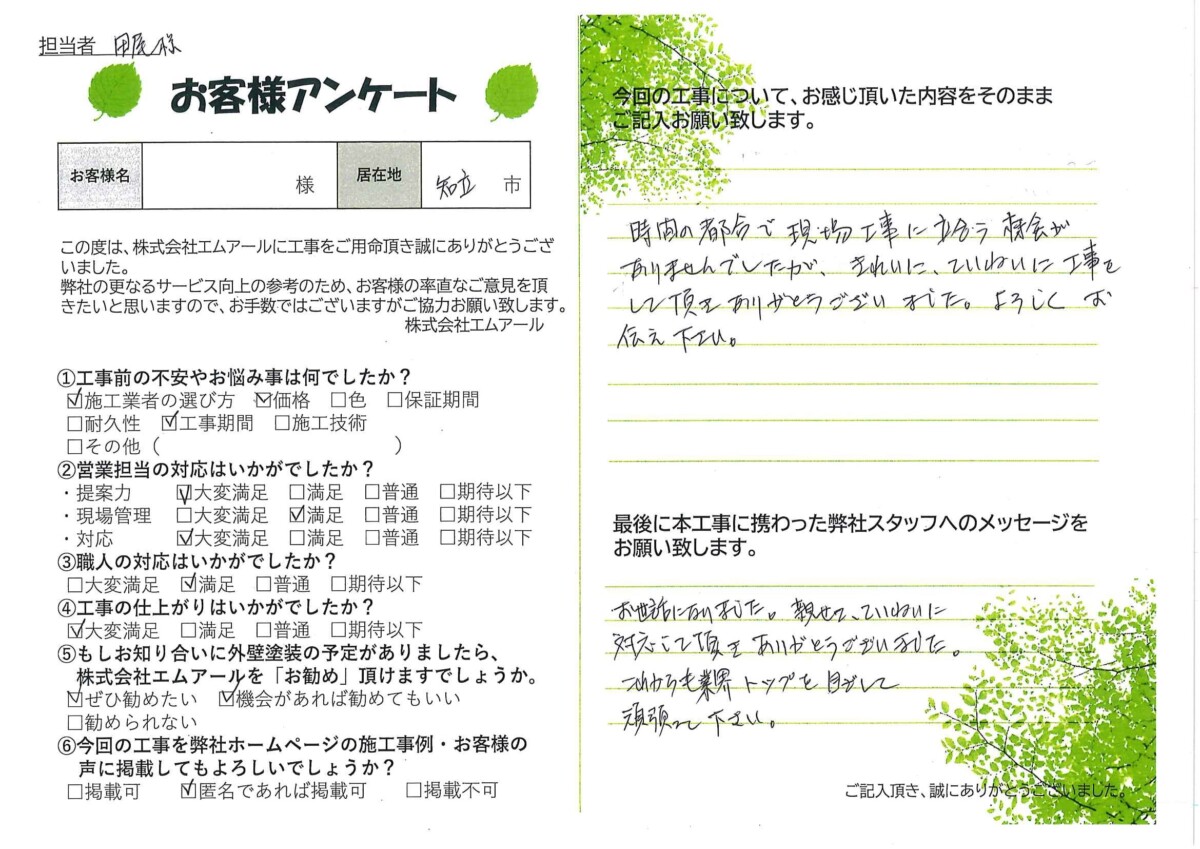 担当者 田尾様
お客様アンケート
お客様名 様 居在地 知立 市
この度は、株式会社エムアールに工事をご用命頂き誠にありがとうござ
いました。
弊社の更なるサービス向上の参考のため、お客様の率直なご意見を頂
きたいと思いますので、お手数ではございますがご協力お願い致します。
株式会社エムアール
①工事前の不安やお悩み事は何でしたか？
☑施工業者の選び方 ☑価格 □色 □保証期間
□耐久性 ☑工事期間 □施工技術
□その他（ ）
②営業担当の対応はいかがでしたか？
・提案力 ☑大変満足 □満足 □普通 □期待以下
・現場管理 □大変満足 ☑満足 □普通 □期待以下
・対応 ☑大変満足 □満足 □普通 □期待以下
③職人の対応はいかがでしたか？
□大変満足 ☑満足 □普通 □期待以下
④工事の仕上がりはいかがでしたか？
☑大変満足 □満足 □普通 □期待以下
⑤もしお知り合いに外壁塗装の予定がありましたら、
株式会社エムアールを「お勧め」頂けますでしょうか。
☑ぜひ勧めたい ☑機会があれば勧めてもいい
□勧められない
⑥今回の工事を弊社ホームページの施工事例・お客様の
声に掲載してもよろしいでしょうか？
□掲載可 ☑匿名であれば掲載可 □掲載不可
今回の工事について、お感じ頂いた内容をそのまま
ご記入お願い致します。
時間の都合で現場工事に立合う機会が
ありませんでしたが、きれいに、ていねいに工事を
して頂きありがとうございました。よろしくお
伝え下さい。
最後に本工事に携わった弊社スタッフへのメッセージを
お願い致します。
お世話になりました。親せつ、ていねいに
対応して頂きありがとうございました。
これからも業界トップを目ざして
頑張って下さい。
ご記入頂き、誠にありがとうございました。